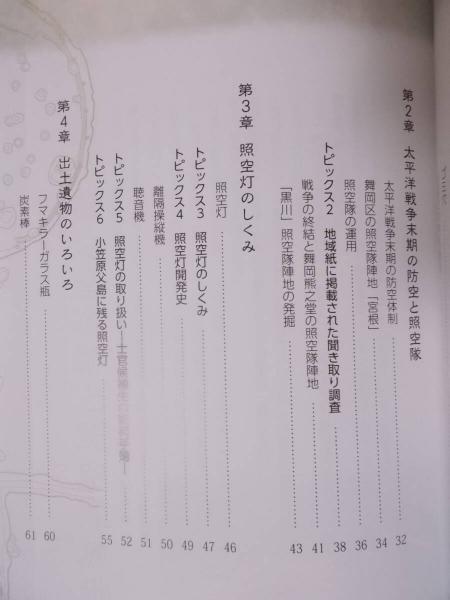 第2章 太平洋戦争末期の防空と照空隊
太平洋戦争末期の防空体制 32
舞岡区の照空隊陣地「宮根」 34
照空隊の運用 36
トピックス2 地域紙に掲載された聞き取り調査 38
戦争の終結と舞岡熊之堂の照空隊陣地 41
「黒川」照空隊陣地の発掘 43
第3章 照空灯のしくみ
照空灯 46
トピックス3 照空灯のしくみ 47
トピックス4 照空灯開発史 49
離隔操縦機 50
聴音機 51
トピックス5 照空灯の取り扱い 52
トピックス6 小笠原父島に残る照空灯 55
第4章 出土遺物のいろいろ
フマキラーガラス瓶 60
炭素棒 61